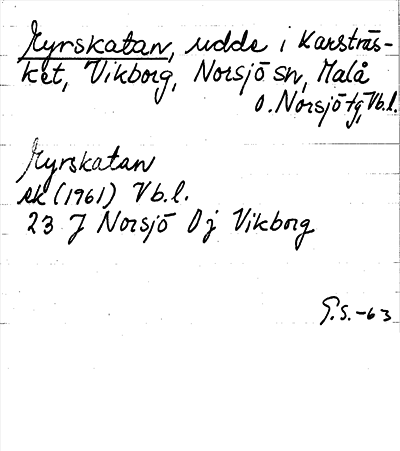 Myrskatan, udde i Karsträs-
ket, Vikborg, Norsjö sn, Malå
o. Norsjö tg, Vb.l.
Myrskatan
ek (1961) Vb.l.
23 J Norsjö 0j Vikborg
G.S.-63